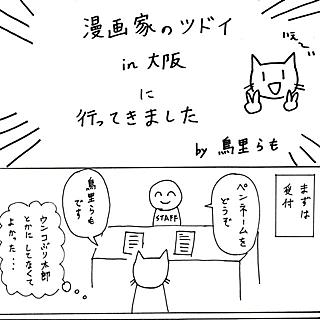 漫画家のツドイ
in 大阪
に
行ってきました
by 鳥里らも
いぇ〜い
まずは
受付
ペンネームを
どうぞ
STAFF
鳥里らも
です
ウンコぶり太郎
とかにしてなくて
よかった…